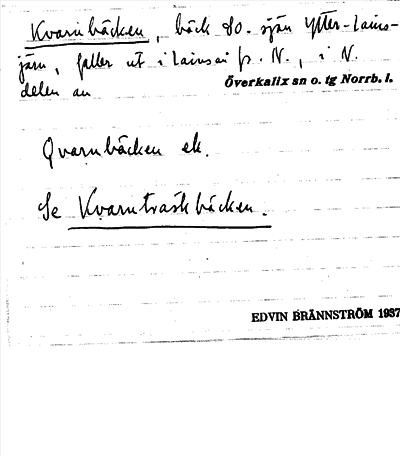 Kvarnbäcken, bäck SO. sjön Ytter-Lains-
järv, faller ut i Lainsån fr. N., i N.
delen av Överkalix sn o. tg Norrb. l.
Qvarnbäcken ek.
Se Kvarnträskbäcken.
EDVIN BRÄNNSTRÖM 1937